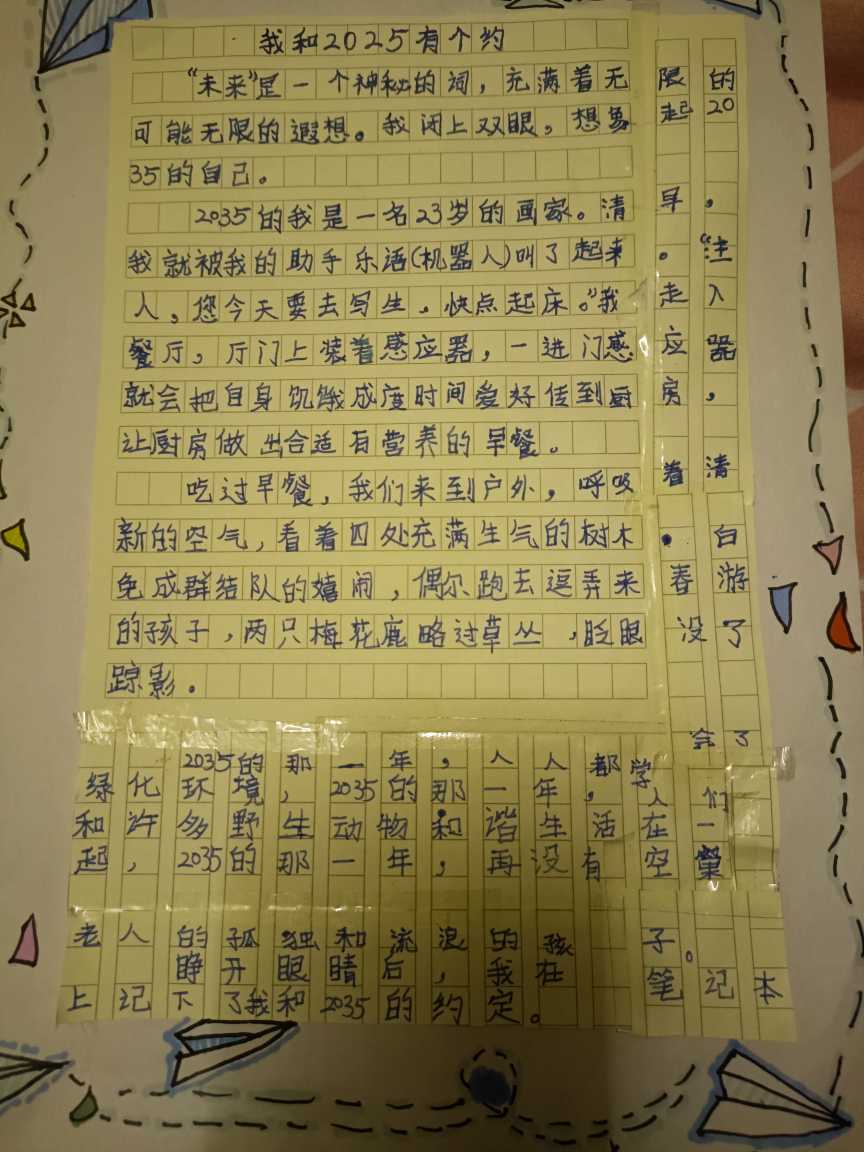 我和2025有个约
“未来”是一个神秘的词，充满着无限的
可能无限的遐想。我闭上双眼，想象起20
35的自己。
2035的我是一名23岁的画家。清早，
我就被我的助手乐语(机器人)叫了起来。“主
人，您今天要去写生，快点起床。”我走入
餐厅，厅门上装着感应器，一进门感应器
就会把自身饥饿成度时间爱好传到厨房，
让厨房做出合适有营养的早餐。
吃过早餐，我们来到户外，呼吸着清
新的空气，看着四处充满生气的树木。白
兔成群结队的嬉闹，偶尔跑去逗弄来春游
的孩子，两只梅花鹿略过草丛，眨眼没了
踪影。
2035的那一年，人人都学会了
绿化环境，2035的那一年，人们
和许多野生动物和谐生活在一
起，2035的那一年，再没有空巢
老人的孤独和流浪的孩子。
睁开眼睛后，我在笔记本
上记下了我和2035的约定。